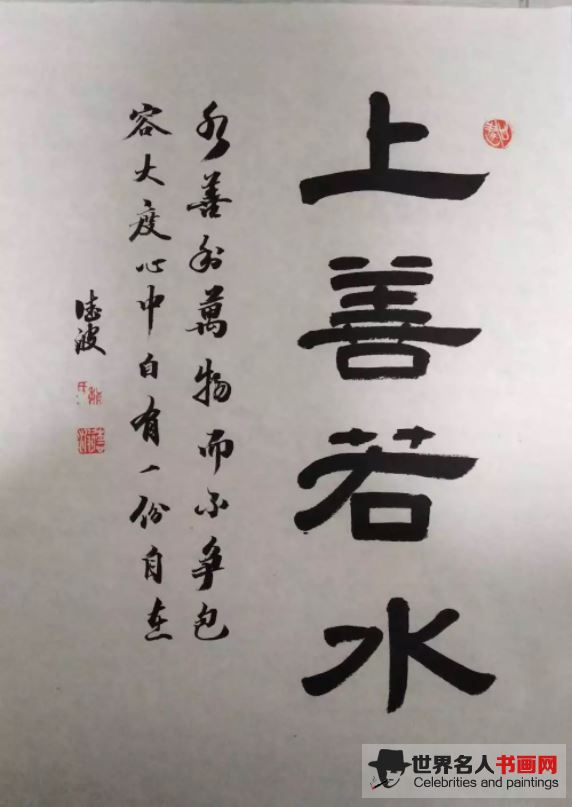 上善若水
水善利萬物而不争包
容大度心中自有一份自在
德波
世界名人书画网
Celebrities and paintings